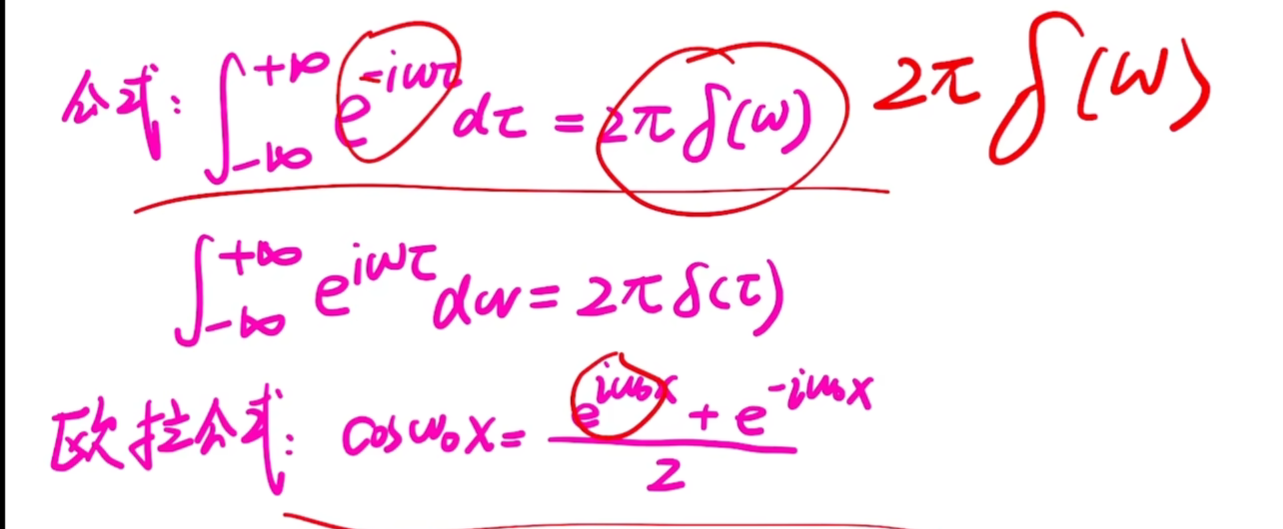 公式: ∫_{-∞}^{+∞} e^{-iωτ} dτ = 2πδ(ω) 2πδ(ω)
∫_{-∞}^{+∞} e^{iωτ} dω = 2πδ(τ)
欧拉公式: cosω₀x = (e^{iω₀x} + e^{-iω₀x}) / 2